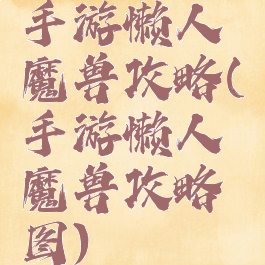 手游懒人
魔兽攻略(
手游懒人
魔兽攻略
图)